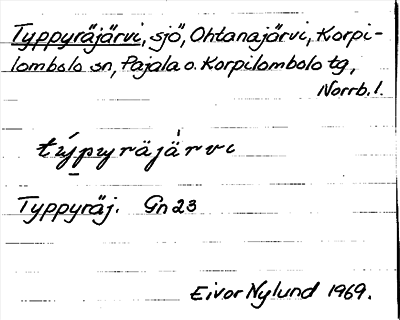 Typpyräjärvi, sjö, Ohtanajärvi, Korpi-
lombolo sn, Pajala o. Korpilombolo tg,
Norrb. l.
týpyräjärvi
Typpyräj. Gn 23
Eivor Nylund 1969.